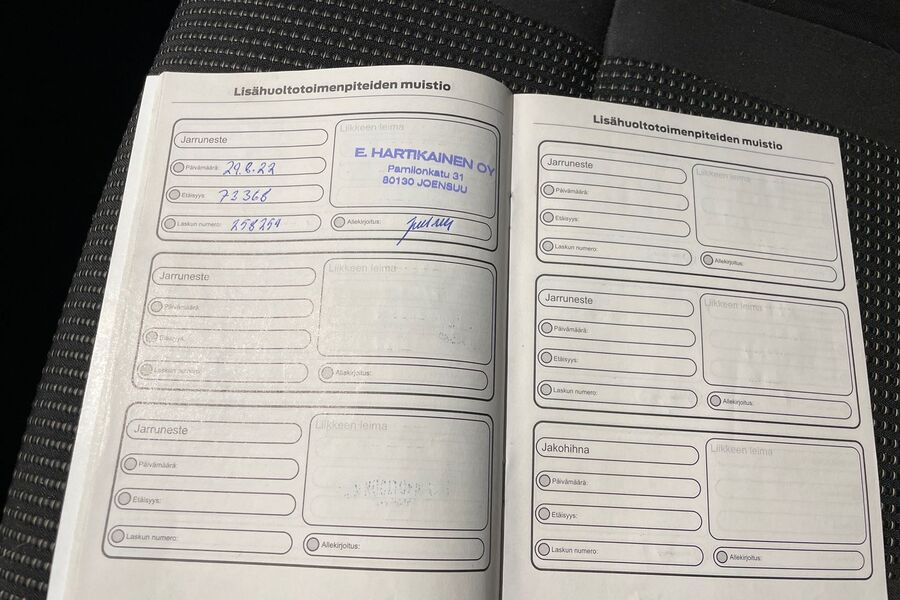 Lisähuoltotoimenpiteiden muistio
Jarruneste
Päivämäärä: 29.8.22
Etäisyys: 73368
Laskun numero: 258254
Liikkeen leima
E. HARTIKAINEN OY
Pamilonkatu 31
80130 JOENSUU
Allekirjoitus:
Jarruneste
Päivämäärä:
Etäisyys:
Laskun numero:
Liikkeen leima
Allekirjoitus:
Jarruneste
Päivämäärä:
Etäisyys:
Laskun numero:
Liikkeen leima
Allekirjoitus:
Lisähuoltotoimenpiteiden muistio
Jarruneste
Päivämäärä:
Etäisyys:
Laskun numero:
Liikkeen leima
Allekirjoitus:
Jarruneste
Päivämäärä:
Etäisyys:
Laskun numero:
Liikkeen leima
Allekirjoitus:
Jakohihna
Päivämäärä:
Etäisyys:
Laskun numero:
Liikkeen leima
Allekirjoitus: